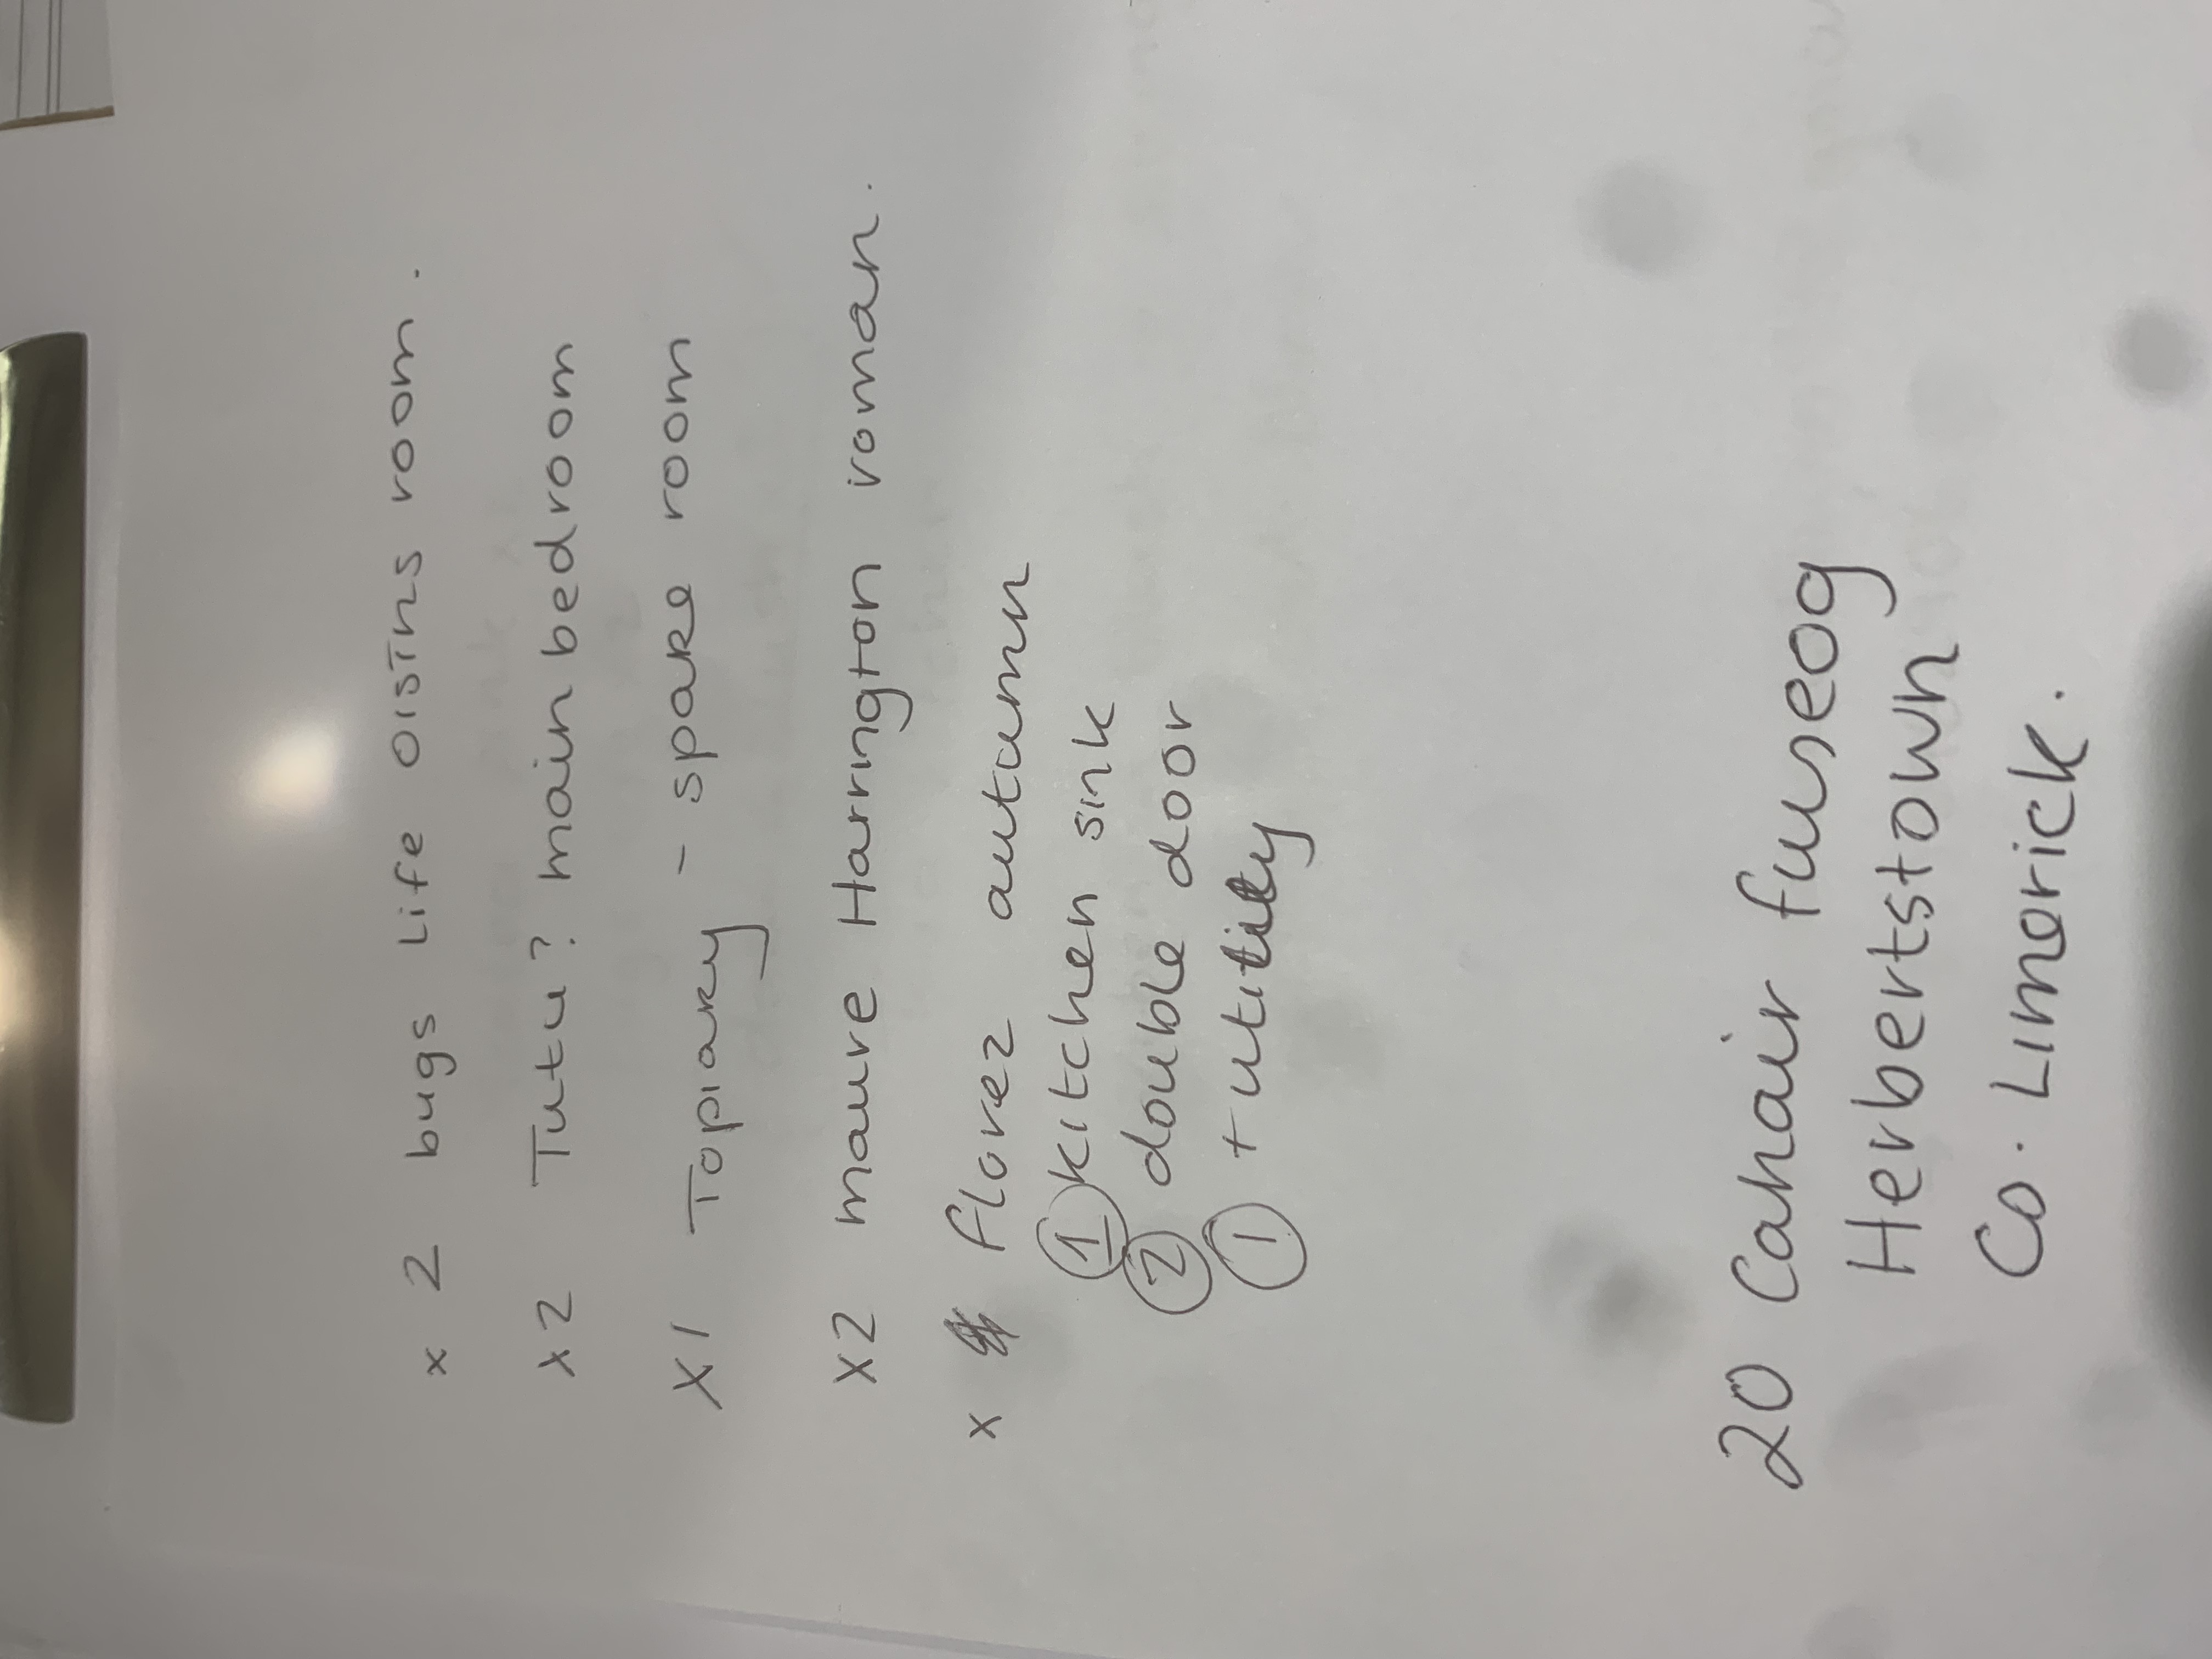 x 2 bugs Life Oisíns room.
x2 Tutu? main bedroom
X1 Topiary - spare room
X2 mauve Harrington roman.
x florez autumn
① kitchen sink
② double door
① + utility
20 Cahair fuiseog
Herbertstown
Co. Limerick.